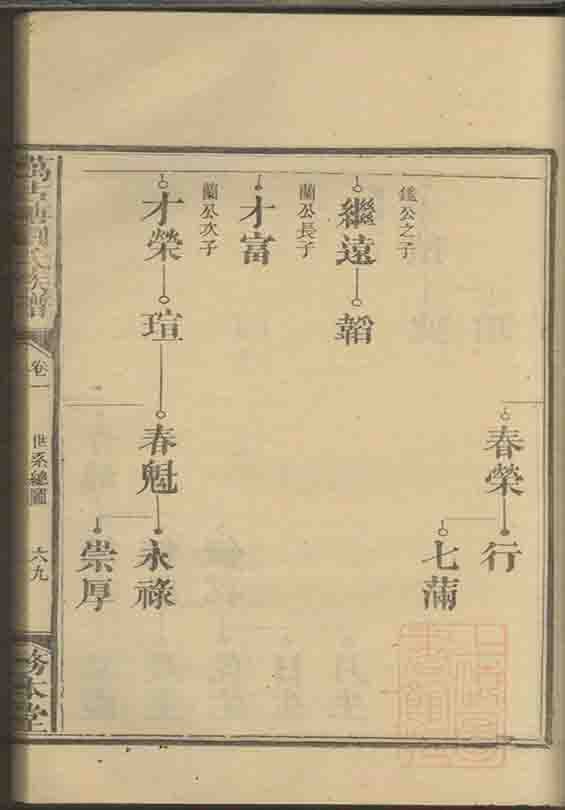 鑑公之子
繼遠
韜
春榮
行
七滿
蘭公長子
才富
蘭公次子
才榮
瑄
春魁
永祿
崇厚
氏族譜
卷一
世系總圖
六九
務本堂